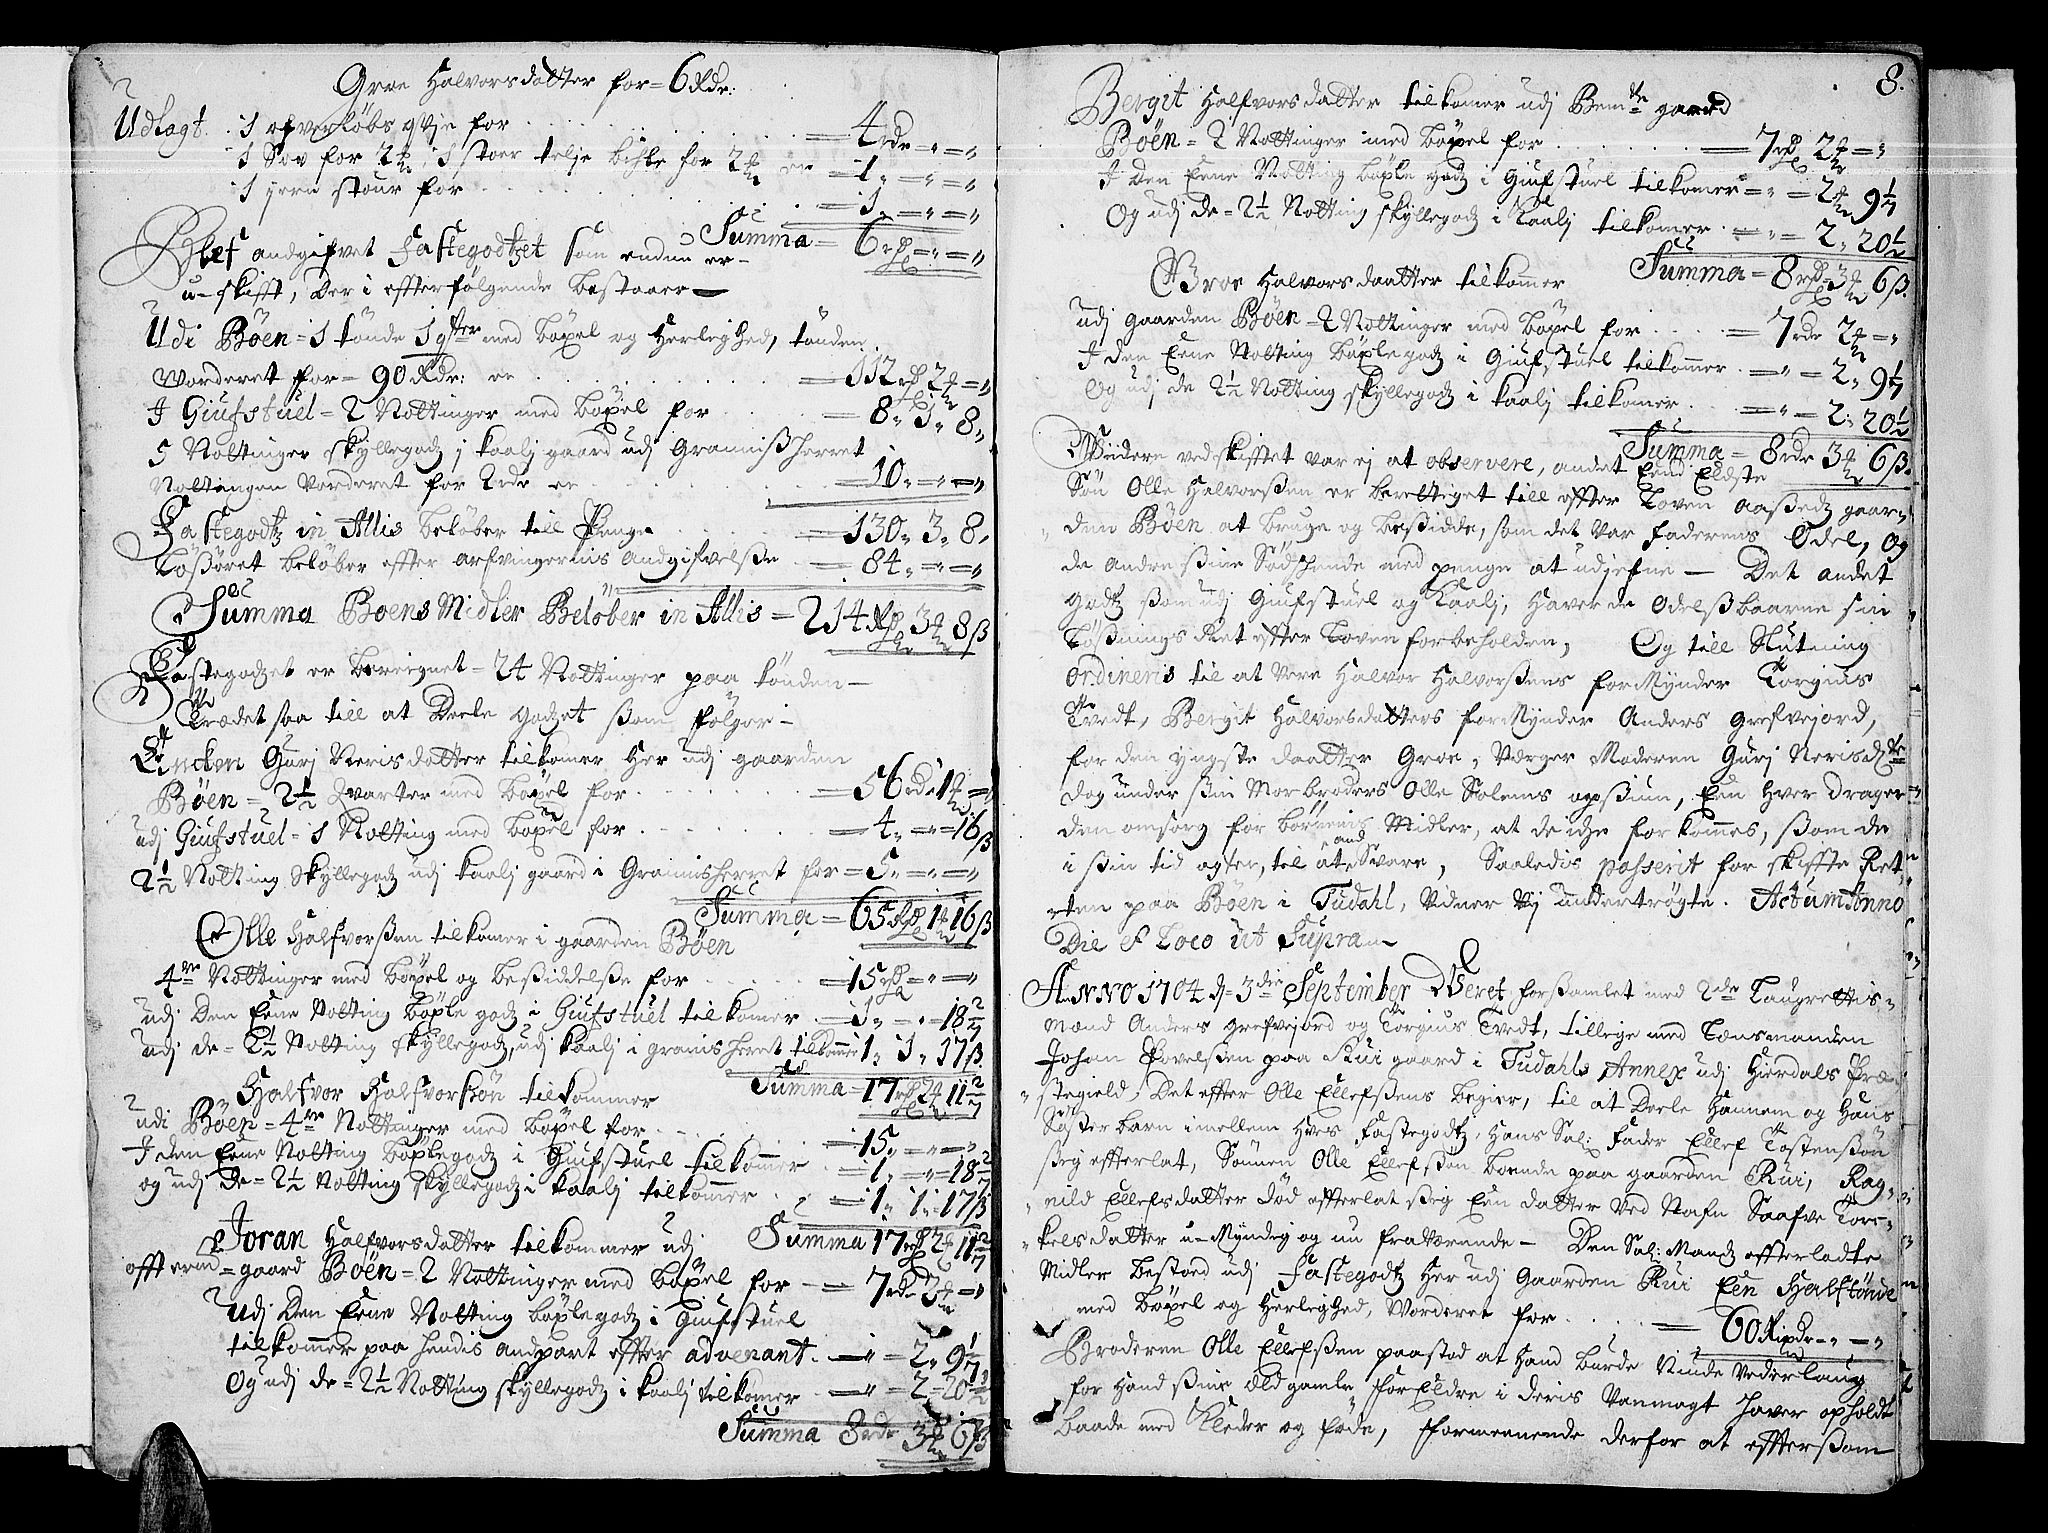 Groe Halvorsdatter for = 6 Rdr:
Udlagt. 1 ofverløbs qvje for = 4 rdr = " = "
1 Sov for 2 ℔, 1 stoer telje bihle for 2 ℔ er = 1 " = " = "
1 jern stour for = 1 " = " = "
Summa = 6 rd = " = "
Blef andgifvet Fastegodtzet som endnu er
u-skifft, Der i effterfølgende bestaaer
Udi Böen = 1 tönde 1 qter med böxel og Herlighed, tönden
Worderet for = 90 Rdr: er = 112 rd 2 = "
I Giufstuel = 2 Nottinger med böxel for = 8 " 1 " 8 "
5 Nottinger skyllegodtz j Kaalj gaard udj Granniß Herret
Nottingen Vorderet for 2 rdr er = 10 " = " = "
Fastegodtz in Allis beløber till Penge = 130 " 3 " 8 "
Lößöret beløber effter arfvingernis Andgifvelße = 84 " = " = "
Summa Boens Midler Beløber in Allis = 214 Rd 3 8 ß
Fastegodtzet er beregnet = 24 Nottinger paa tönden
Trædet saa till at Deele godtzet ßom fölger
Encken Gurj Nerisdatter tilkomer Her udj gaarden
Böen = 2½ Qvarter med böxel for = 56 rdr 1 = "
udj Giufstuel = 1 Notting med böxel for = 4 " = " = 16 ß
2½ Notting Skyllegodtz udj Kaalj gaard i Grannisherret for = 5 " = " = "
Summa = 65 Rd 1 16 ß
Olle Halfvorßen tilkomer i gaarden Böen
4re Nottinger med böxel og beßiddelße for = 15 rd = " = "
udj Den Eene Notting böxle godtz i Giufstuel tilkomer = 1 " = " = 18 2/7
udj de = 2½ Notting skyllegodtz, udj Kaalj i granisherret tilkommer 1 " 1 " 17 ß
Summa = 17 rd 2 11 2/7
Halfvor Halfvorßön tilkommer
udi Böen = 4re Nottinger med böxel for = 15 " = " = "
I den Eene Notting böxlegodtz i Giufstuel tilkommer = 1 " = " = 18 2/7
og udj de = 2½ Notting skyllegodtz i Kaalj tilkommer = 1 " 1 " 17 ß
Summa 17 rd 2 11 2/7
Joran Halfvorsdatter tilkommer udj
offtermd = gaard Böen = 2 Nottinger med böxel for = 7 rdr 2 = "
Udj Den Eene Notting böxlegodtz i Giufstuel
tilkommer paa hendis andpart effter advenant = " = 2 " 9 1/7
Og udj de = 2½ Notting skyllegodtz i Kaalj tilkomer = " = 2 = 20 ½
Summa 8 rdr 3 6 ß
8.
Bergit Halfvorsdatter tilkomer udj Bemte gaard
Böen = 2 Nottinger med böxel for = 7 rd 2 = "
I Den Eene Notting böxle godtz i Giufstuel tilkomer = " = 2 9 1/7
Og udj de = 2½ Notting skyllegodtz i Kaalj tilkomer = " = 2 " 20 ½
Summa = 8 rd 3 6 ß.
Groe Halvorsdaatter tilkommer
udj gaarden Böen = 2 Nottinger med böxel for = 7 rdr 2 = "
I den Eene Notting böxlegodtz i Giufstuel tilkommer = " = 2 " 9 1/7
Og udj de 2½ Notting skyllegodtz i Kaalj tilkomer = " = 2 " 20 ½
Summa = 8 rdr 3 6 ß.
Widere ved skifftet var ej at observere, andet End Eldste
Sön Olle Halvorßen er berettiget till effter Loven aaßedz gaar-
den Böen at bruge og beßidde, som det var Faderens Odel, Og
de andre ßine Sødskende med penge at udjefne — Det andet
godtz ßom udj Giufstuel og Kaalj, Haver de Odelßbaarne sin
Lößnings Ret effter Loven forbeholden, Og till Slutning
ordineris til at Vere Halvor Halvorßens forMynder Torgius
Tvedt, Bergit Halvorsdatters forMynder Anders Grefvejord,
for den yngste daatter Groe, Værger Moderen Gurj Nerisdtr
dog under ßin Morbroders Olle Solems opßiun, Een hver drager
den omsorg for börenis Midler, at de icke forkommes, ßom de
i ßin tid agter, til at andSvare, Saaledis passerit for skiffte Ret-
ten paa Böen i Tudahl, Vidner Vj undertrögte. Actum Anno
Die et Loco ut Supra
ANNO 1704 d= 3die September Weret forßamlet med 2de Laugrettis-
mænd Anders Grefvejord og Torgius Tvedt, tillige med Lensmanden
Johan Povelßen paa Rui gaard i Tudahls Annex udj Hierdals Præ-
stegield, Det effter Olle Ellefßens begier, til at Deele Hannem og Hans
Sösterbarn imellem Hves Fastegodtz, Hans Sal: Fader Ellef Tostenßön
ßig effterlat, Sönnen Olle Ellefßön boende paa gaarden Rui, Rag-
nild Ellefsdatter död effterlat ßig Een datter ved Nafn Saafve Tore-
kelsdatter u-Myndig og nu fraværende — Den Sal: Mandtz effterladte
Midler bestoed udj Fastegodtz Her udj Gaarden Rui Een Halftönde
med böxel og Herlighed, Vorderet for = 60 Rixdr = " = "
Broderen Olle Ellefßen paastod at Hand burde Niude Vederlaug
for Hand ßine Old gamle forEldre i deris Vanmagt haver opholdt
baade med Kleder og föde, Formeenende derfor at efftersom